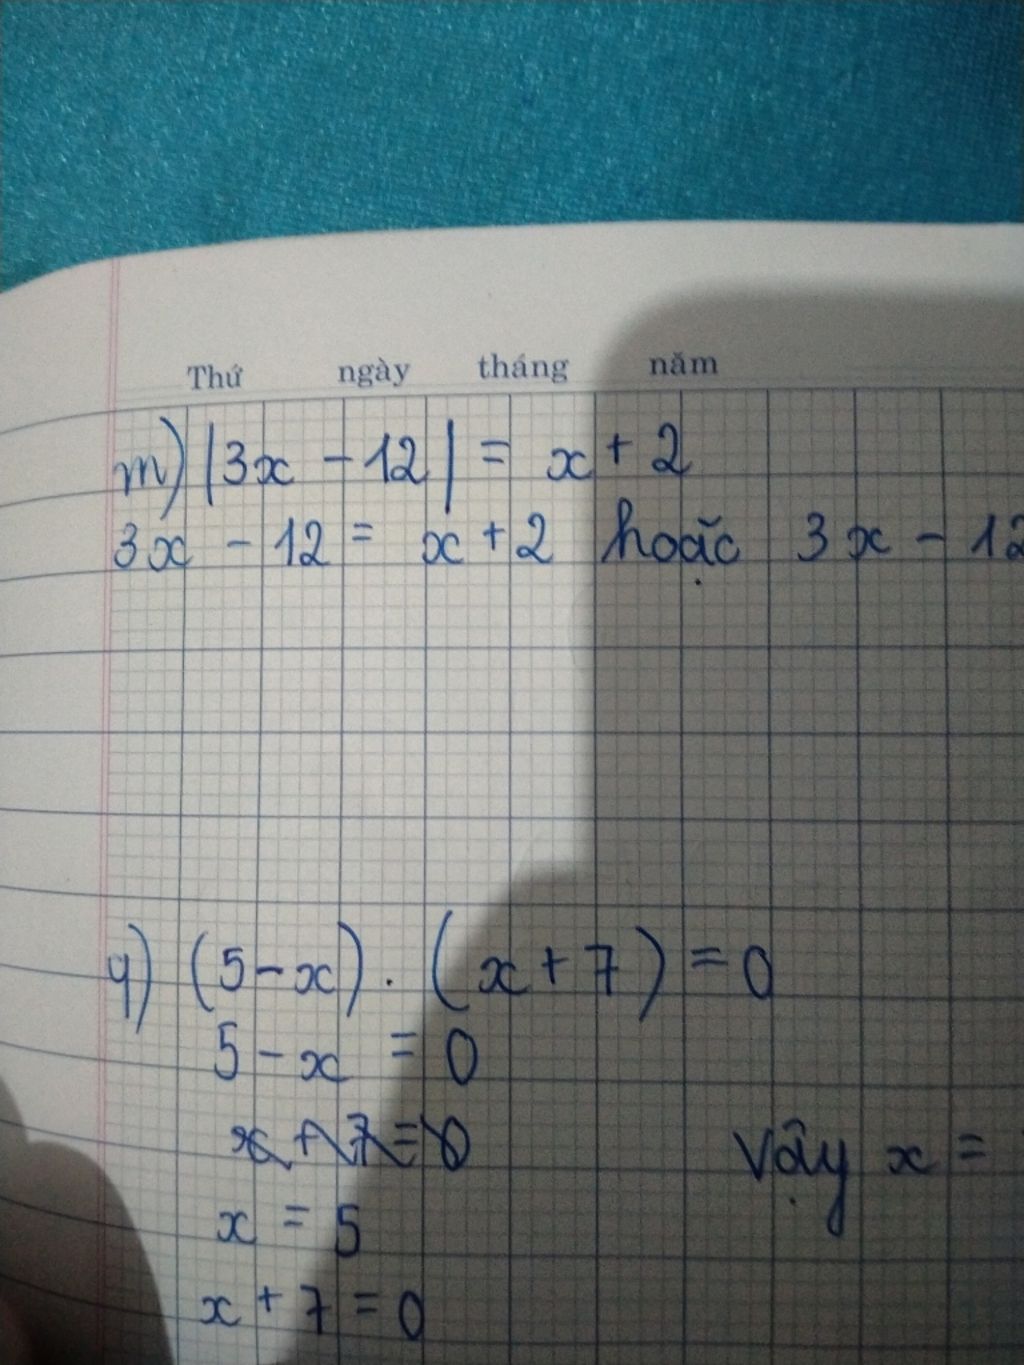 Thứ ngày tháng năm
m) |3x - 12| = x + 2
3x - 12 = x + 2 hoặc 3x - 12
q) (5 - x) . (x + 7) = 0
5 - x = 0
x + 7 = 0
Vậy x =
x = 5
x + 7 = 0